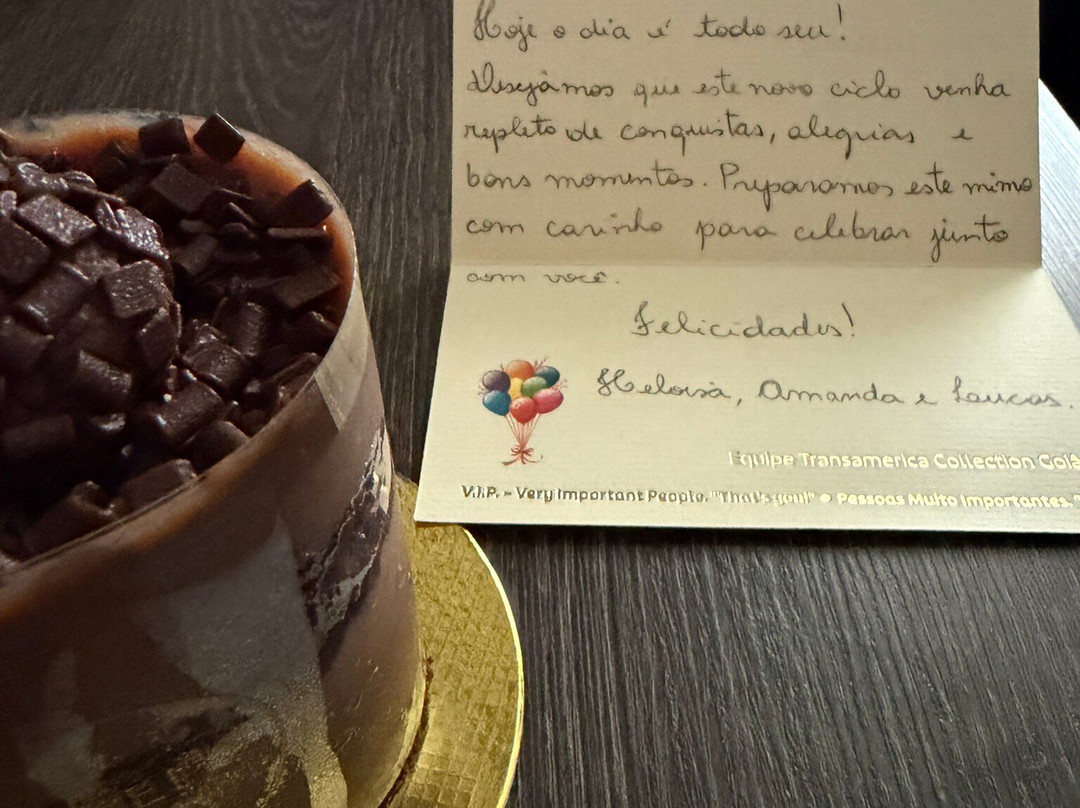 Hoje o dia é todo seu!
Desejamos que este novo ciclo venha
repleto de conquistas, alegrias e
bons momentos. Preparamos este mimo
com carinho para celebrar junto
com você.
Felicidades!
Heloisa, Amanda e Luucas.
Equipe Transamerica Collection Goiâ
V.I.P. - Very Important People. "That's you!" e Pessoas Muito Importantes."